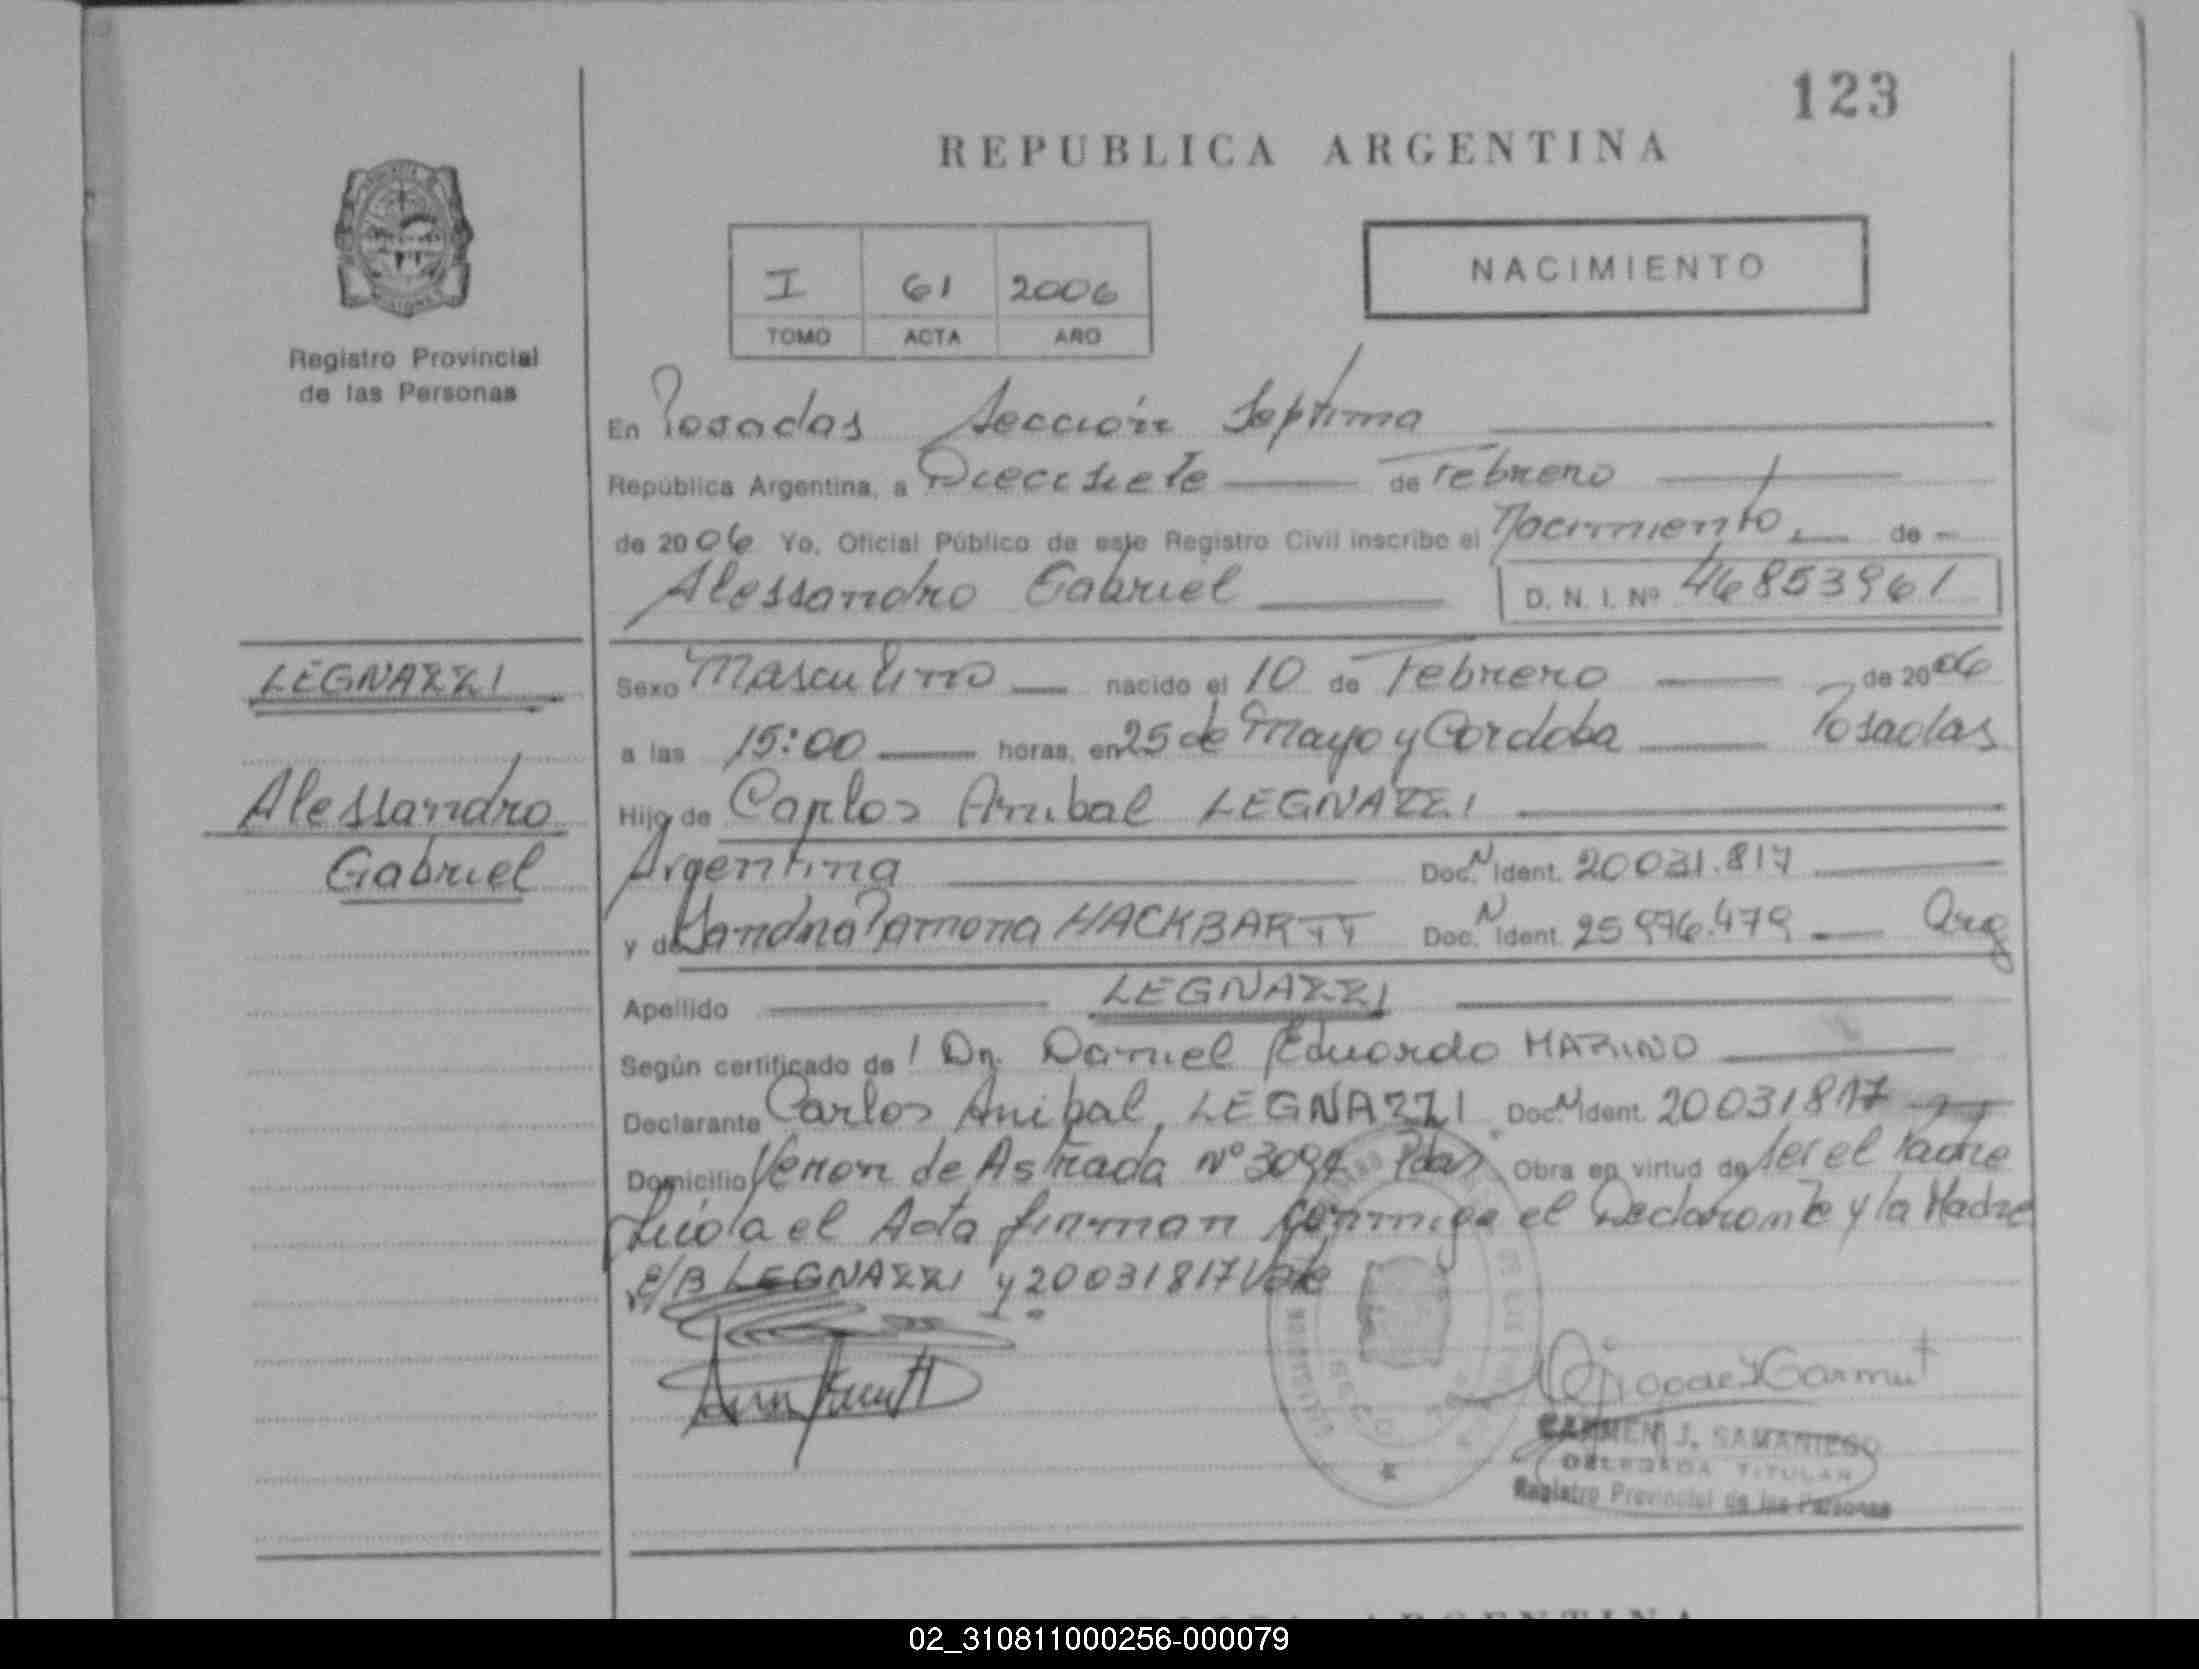 123
REPUBLICA ARGENTINA
I 61 2006
TOMO ACTA AÑO
NACIMIENTO
Registro Provincial
de las Personas
En Posadas Sección Septima
República Argentina, a Diecisiete de Febrero
de 2006 Yo, Oficial Público de este Registro Civil inscribo el Nacimiento de
Alessandro Gabriel D. N. I. Nº 46853961
LEGNAZZI
Alessandro
Gabriel
Sexo Masculino nacido el 10 de Febrero de 2006
a las 15:00 horas, en 25 de Mayo y Cordoba Posadas
Hijo de Carlos Anibal LEGNAZZI
Argentina Doc. N Ident. 20031.817
y de Sandra Ramona HACKBARTT Doc. N Ident. 25976.479 Arg
Apellido LEGNAZZI
Según certificado de Dr. Daniel Eduardo MARINO
Declarante Carlos Anibal, LEGNAZZI Doc. N Ident. 20031817
Domicilio de Astrada Nº Pdas Obra en virtud de ser el Padre
Leida el Acta firman conmigo el Declarante y la Madre
E/B LEGNAZZI y 20031817 Vale
CARMEN J. SAMANIEGO
DELEGADA TITULAR
Registro Provincial de las Personas
02_310811000256-000079